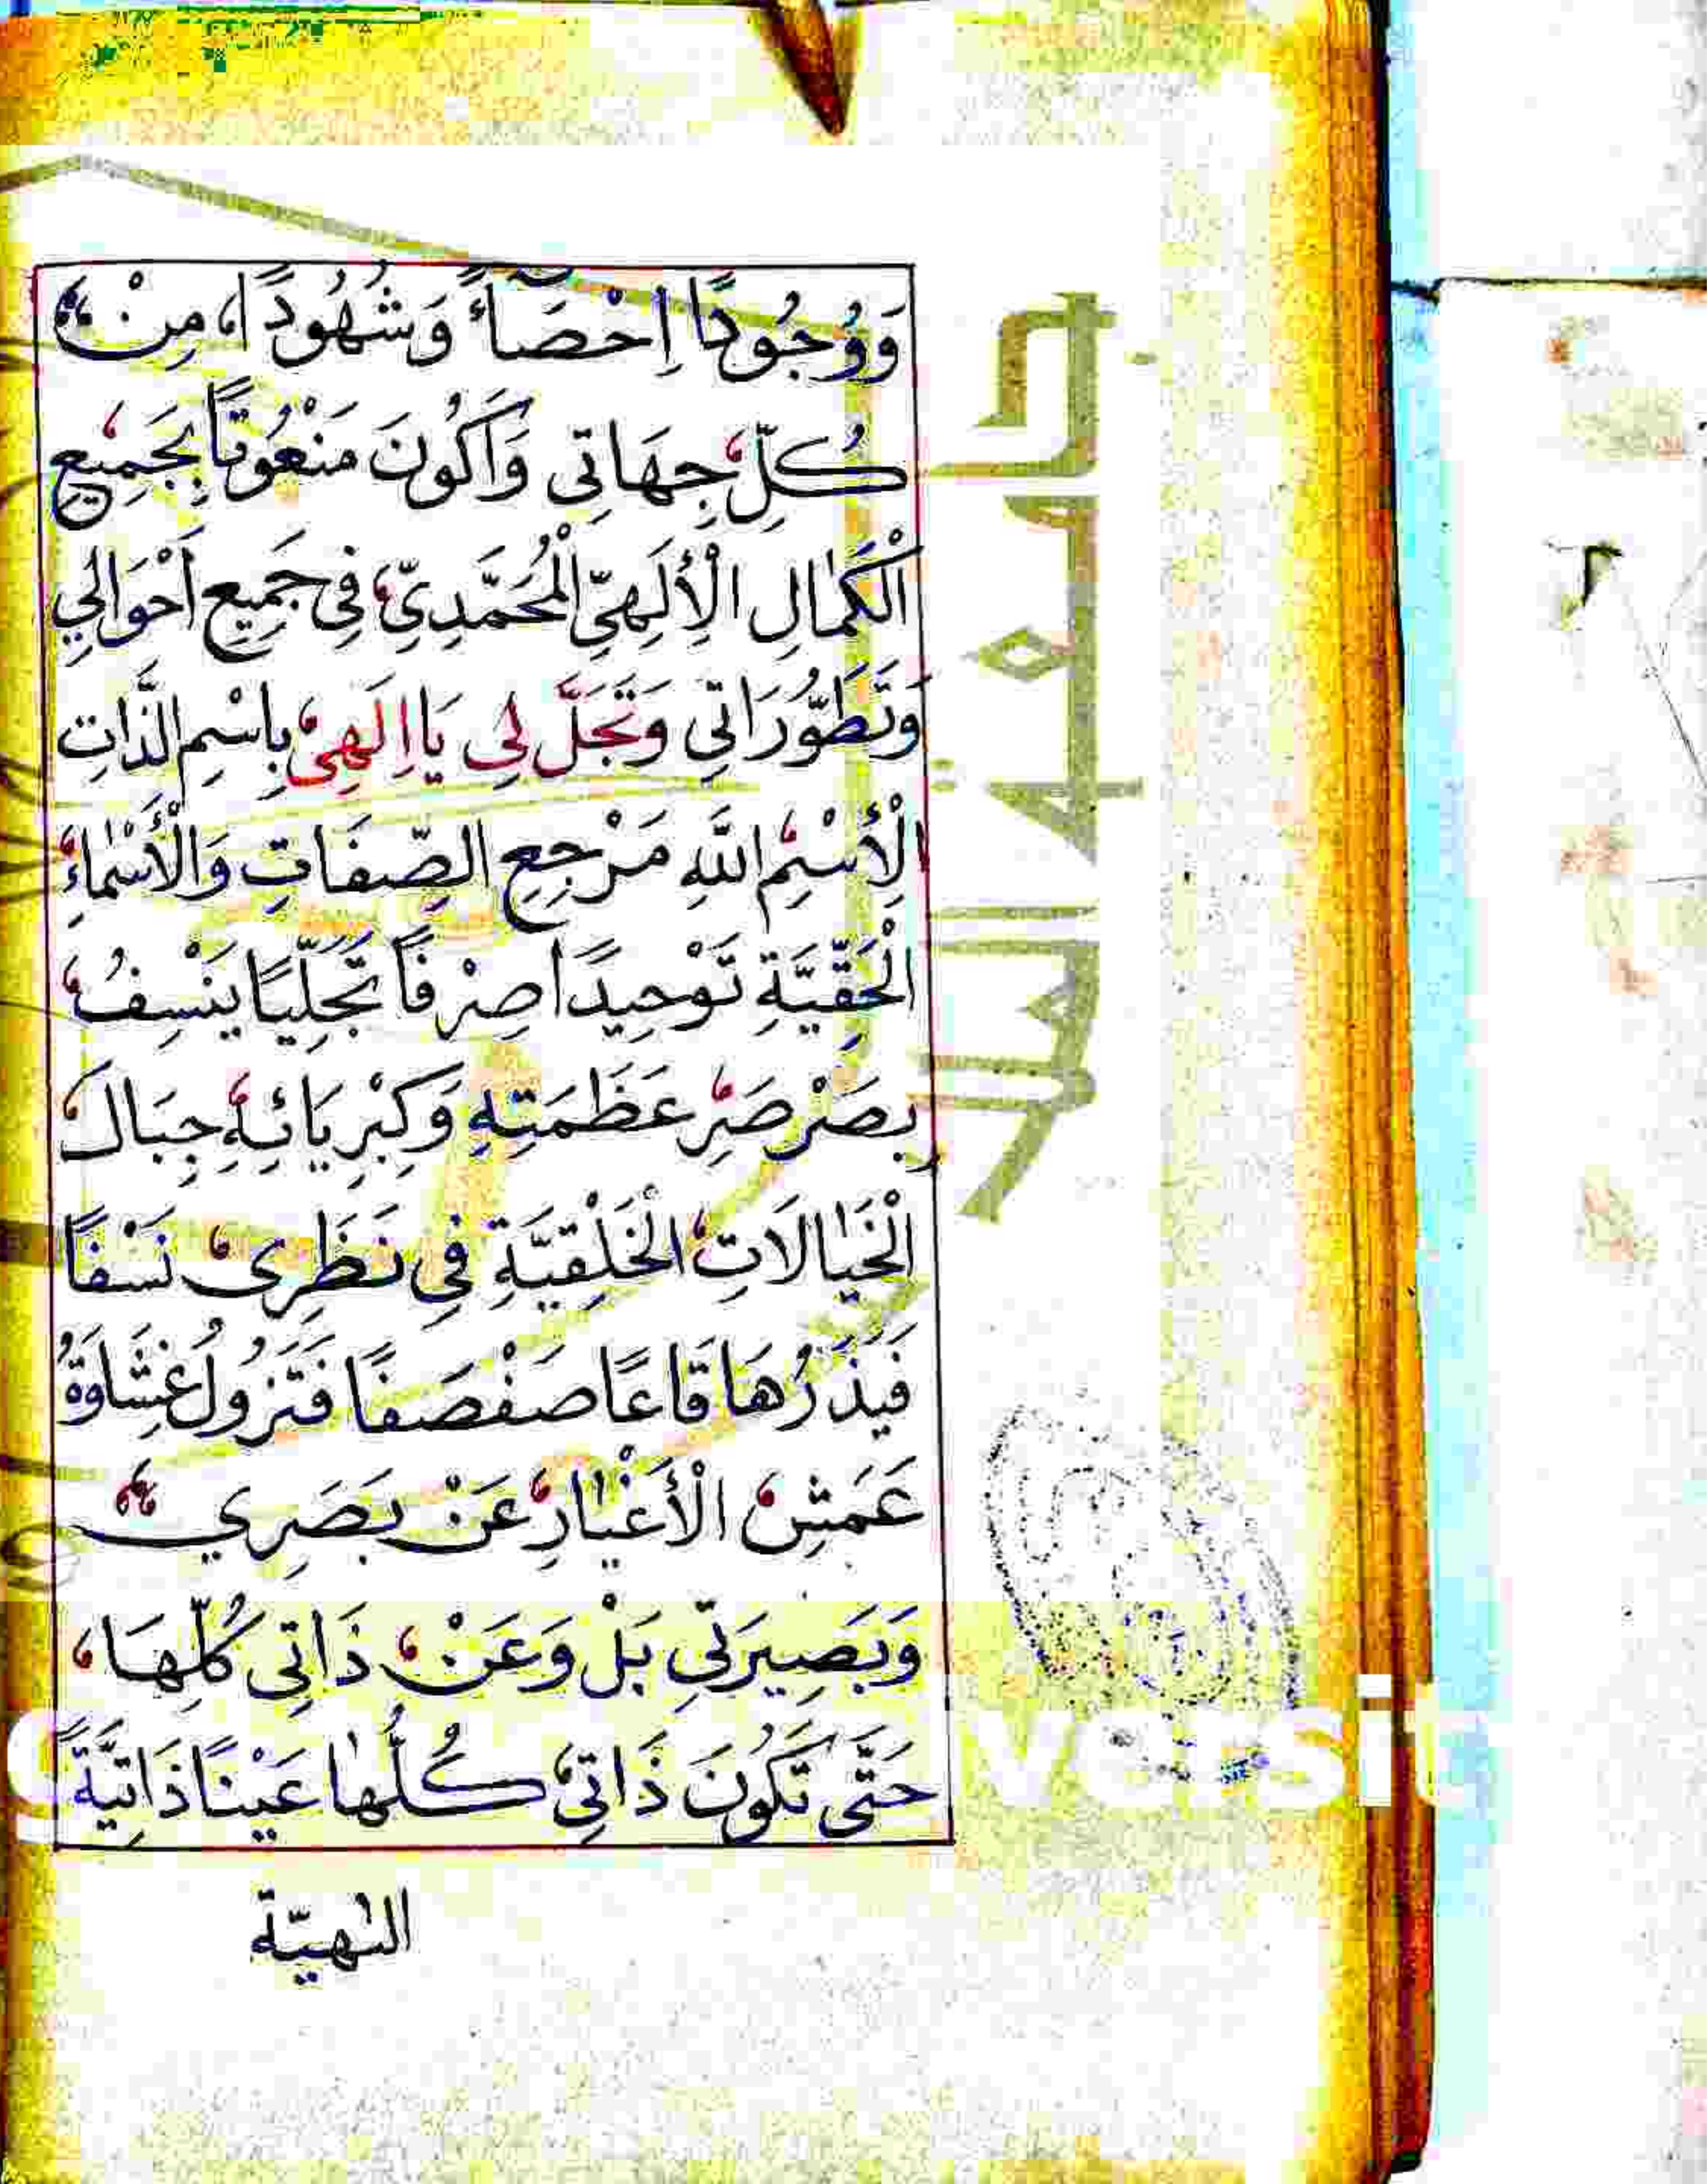 وَوُجُودًا اِحْصَآءً وَشُهُودًا، مِنْ
كُلِّ جِهَاتِي وَاَكُونَ مَنْعُوتًا بِجَمِيعِ
الْكَمَالِ الْاِلَهِيِّ الْمُحَمَّدِيِّ فِي جَمِيعِ اَحْوَالِي
وَتَطَوُّرَاتِي وَتَجَلَّ لِي يَا اِلَهِي بِاسْمِ الذَّاتِ
الْاِسْمِ اللَّهِ مَرْجِعِ الصِّفَاتِ وَالْأَسْمَاءِ
الْحَقِّيَّةِ تَوْحِيدًا صِرْفًا تَجَلِّيًا يَنْسِفُ
بِصَرْصَرِ عَظَمَتِهِ وَكِبْرِيَائِهِ جِبَالَ
الْخَيَالَاتِ الْخَلْقِيَّةِ فِي نَظَرِي نَسْفًا
فَيَذَرُهَا قَاعًا صَفْصَفًا فَتَزُولُ غِشَاوَةُ
عَمَشِ الْأَغْيَارِ عَنْ بَصَرِي
وَبَصِيرَتِي بَلْ وَعَنْ ذَاتِي كُلِّهَا،
حَتَّى تَكُونَ ذَاتِي كُلُّهَا عَيْنًا ذَاتِيَّةً
جامعة الملك
versit